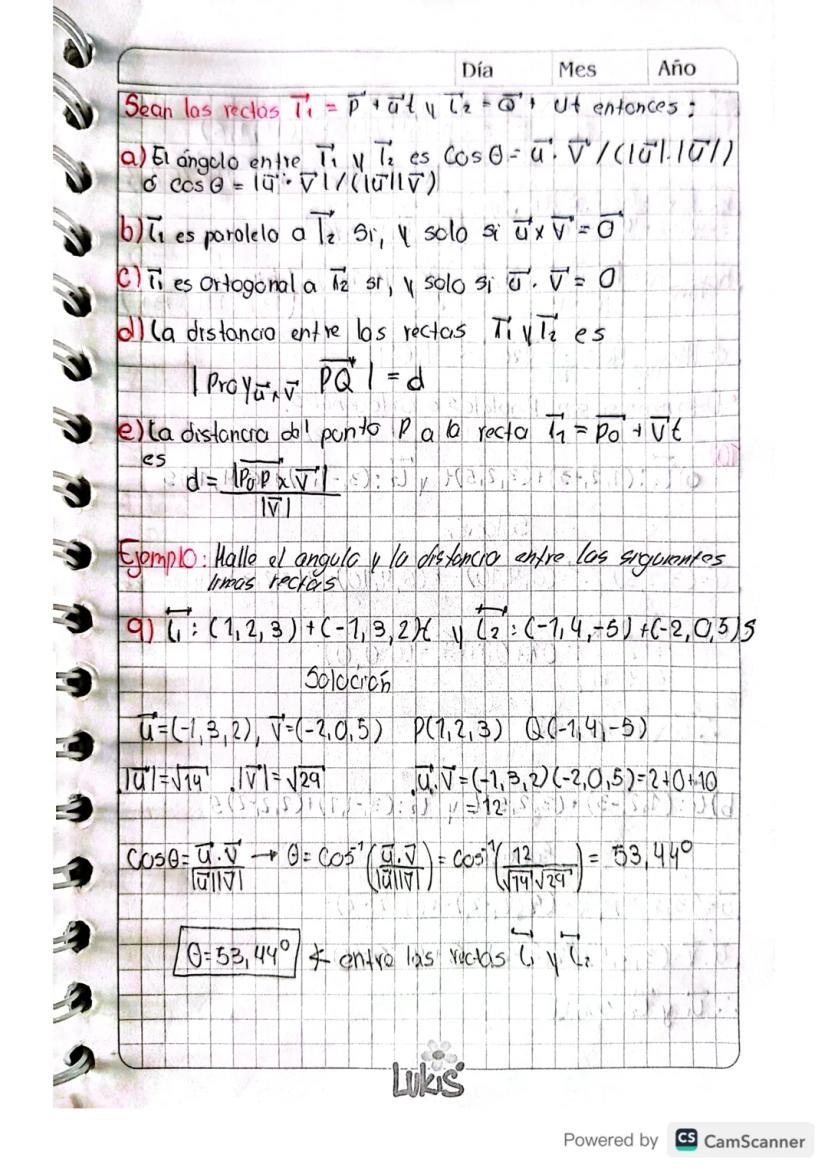 Día Mes Año
Sean las rectas T₁ = P + ūt y L₂ = Q + Ut entonces:
a) El ángulo entre T₁ y T₂ es Cos θ = u · V / (|u|.|u|)
ó cos θ = |u · v| / (|u||v)
b) L₁ es paralelo a T₂ Si, y solo si u x v = 0
C) T₁ es ortogonal a T₂ si, y solo si u · v = 0
d) La distancia entre las rectas T₁ y T₂ es
| Proy u x v PQ | = d
e) la distancia del punto P a la recta T₁ = P₀ + Vt
es
d = |P₀P x V| / |V|
Ejemplo: Halle el angulo y la distancia entre las siguientes
lineas rectas
a) L₁ : (1,2,3)+(-1,3,2)t y L₂ : (-1,4,-5)+(-2,0,5)s
Solución
u=(-1,3,2), v=(-2,0,5) P(1,2,3) Q(-1,4,-5)
|u|=√14 , |v|=√29 u.v=(-1,3,2)(-2,0,5)=2+0+10
=12
Cosθ = u.v / |u||v| → θ = Cos⁻¹(u.v / |u||v|) = cos⁻¹(12 / √14 √29) = 53,44°
θ=53,44° ∡ entre las rectas L₁ y L₂
LUKIS
Powered by CS CamScanner